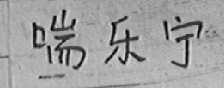 喘乐宁